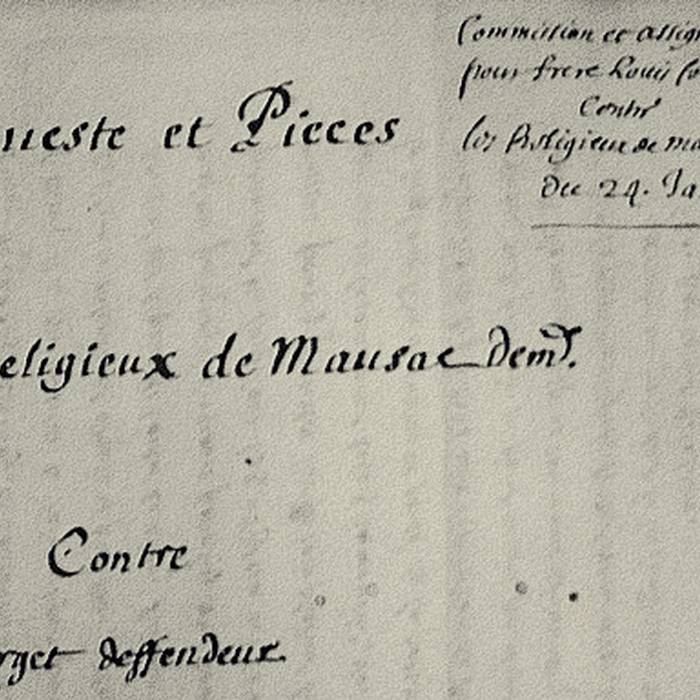 ueste et Pieces
eligieux de Mausac dem^r.
Contre
rget deffendeur.
Commission et assig
pour frere Louis
Contre
les Religieux de ma
Du 24. Ja